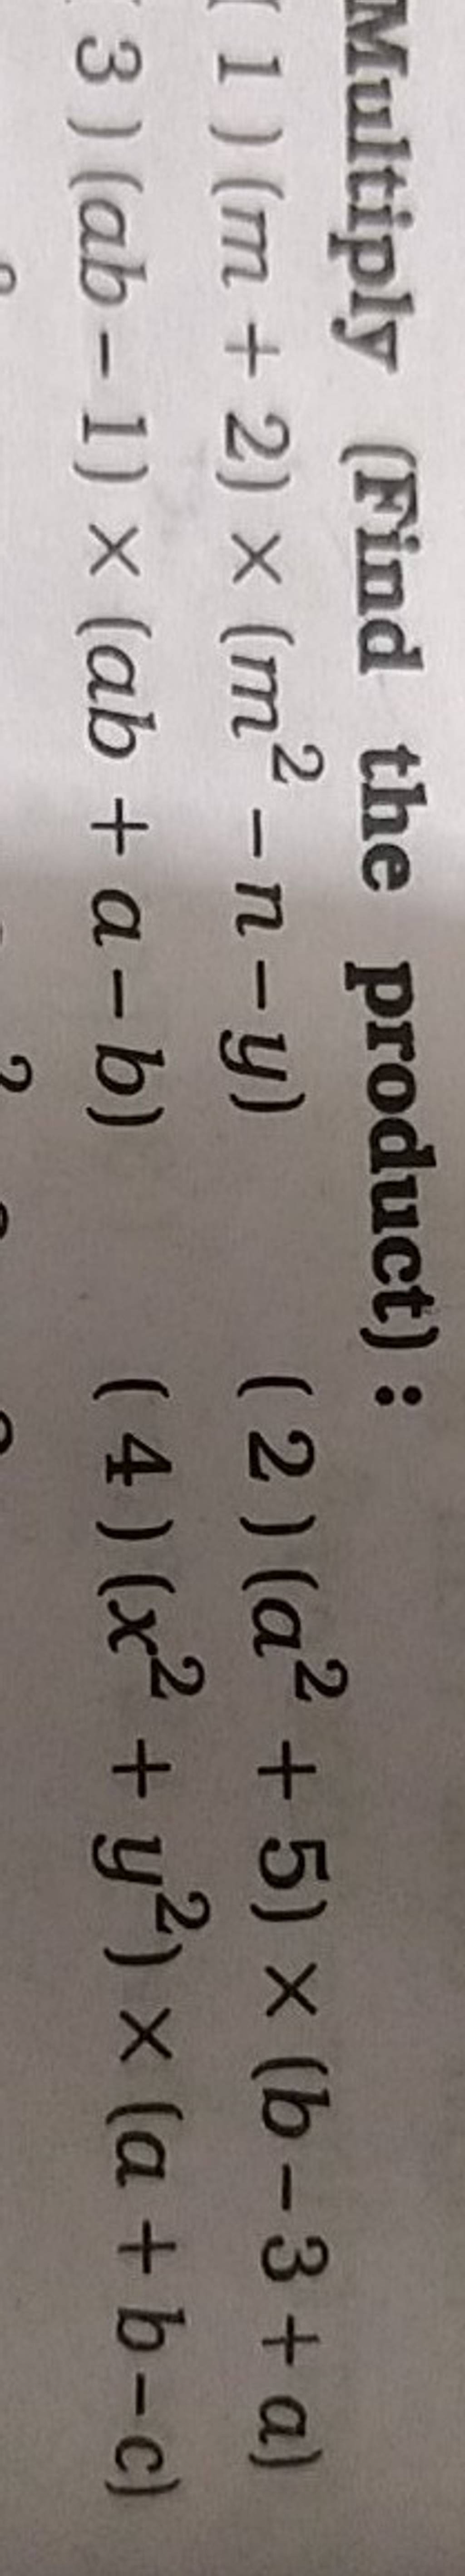 Multiply (Find the product) :
( 1 ) (m + 2) × (m² – n – y) ( 2 ) (a² + 5) × (b – 3 + a)
( 3 ) (ab – 1) × (ab + a – b) ( 4 ) (x² + y²) × (a + b – c)